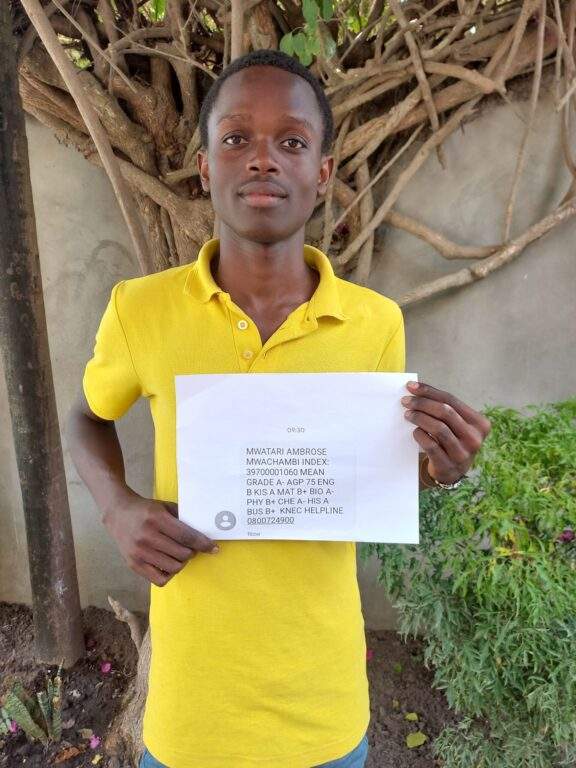 09:30
MWATARI AMBROSE
MWACHAMBI INDEX:
39700001060 MEAN
GRADE A- AGP 75 ENG
B KIS A MAT B+ BIO A-
PHY B+ CHE A- HIS A
BUS B+ KNEC HELPLINE
0800724900
Now